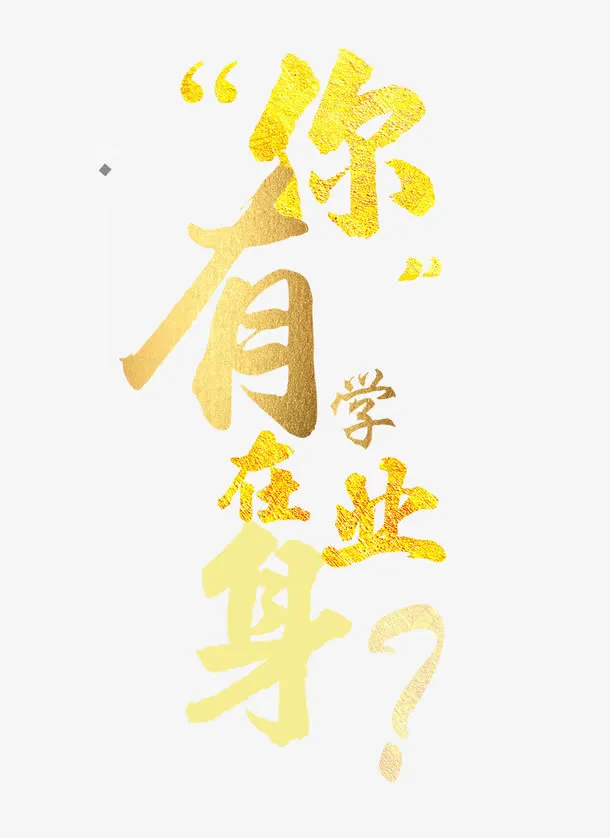 “你”
有
学业
在身？